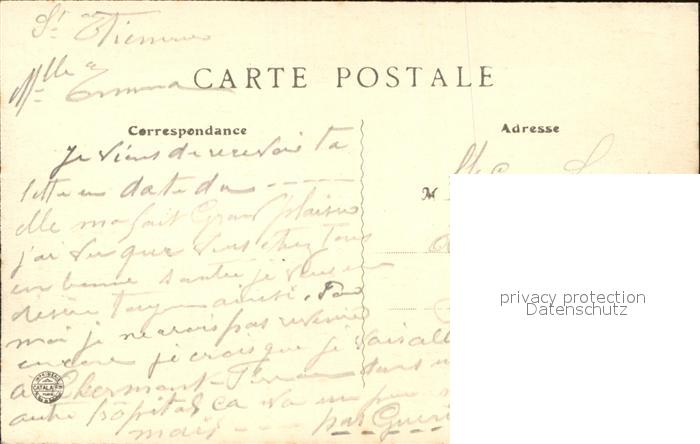 St Etienne
Mlle Emma
CARTE POSTALE
Correspondance
Adresse
Je viens de recevoir ta
lettre en date du - - - -
elle ma fait Grand plaisir
j'ai vu que vous étiez tous
en bonne santée je vous en
désire toujours ainsi. Pour
moi je ne serais pas
encore je crois que je vais all
à Clermont-Ferran dans u
autre hôpital ça va un peu
mais - - - pas Gueri
M
privacy protection
Datenschutz